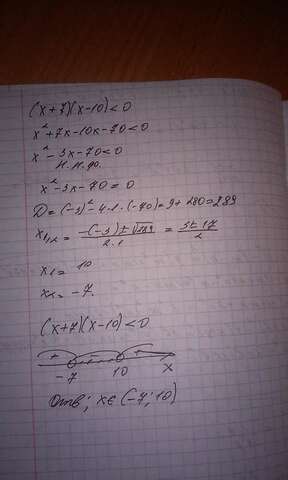 (x+7)(x-10)<0
x²+7x-10x-70<0
x²-3x-70<0
x²-3x-70=0
D=(-3)²-4·1·(-70)=9+280=289
x₁,₂=\frac{-(-3)±√289}{2·1}=\frac{3±17}{2}
x₁=10
x₂=-7.
(x+7)(x-10)<0
+ --- +
-7 10 x
Отв; x∈(-7; 10)